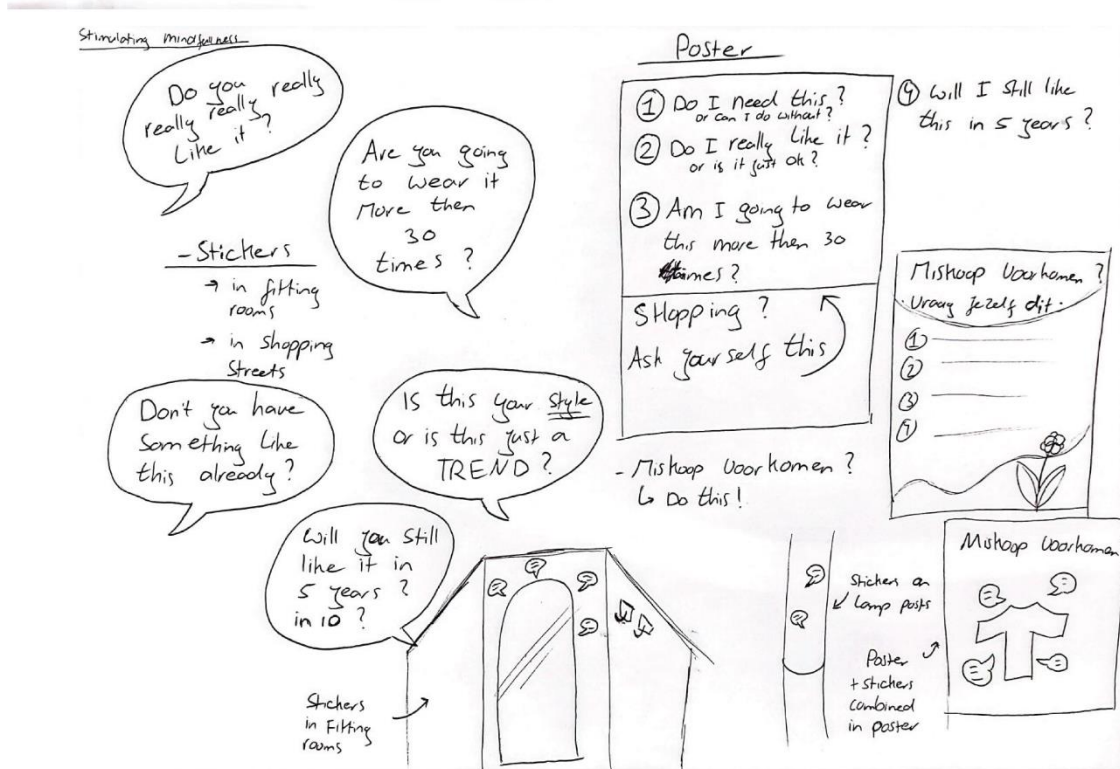 Stimulating mindfullness
Do you really
really really
Like it ?
Are you going
to wear it
More then
30
times ?
- Stickers
→ in fitting
rooms
→ in shopping
Streets
Don't you have
Something like
this already ?
IS this your style
or is this just a
TREND ?
Will you still
like it in
5 years ?
in 10 ?
Stickers
in Fitting
rooms
Poster
① Do I need this ?
or can I do without ?
② Do I really like it ?
or is it just ok ?
③ Am I going to wear
this more then 30
times ?
SHopping ?
Ask yourself this
④ Will I still like
this in 5 years ?
- Miskoop Voorkomen ?
↳ Do this !
Miskoop Voorkomen ?
· Vraag Jezelf dit ·
①
②
③
④
Stickers on
Lamp posts
Poster
+ stickers
combined
in poster
Miskoop Voorkomen